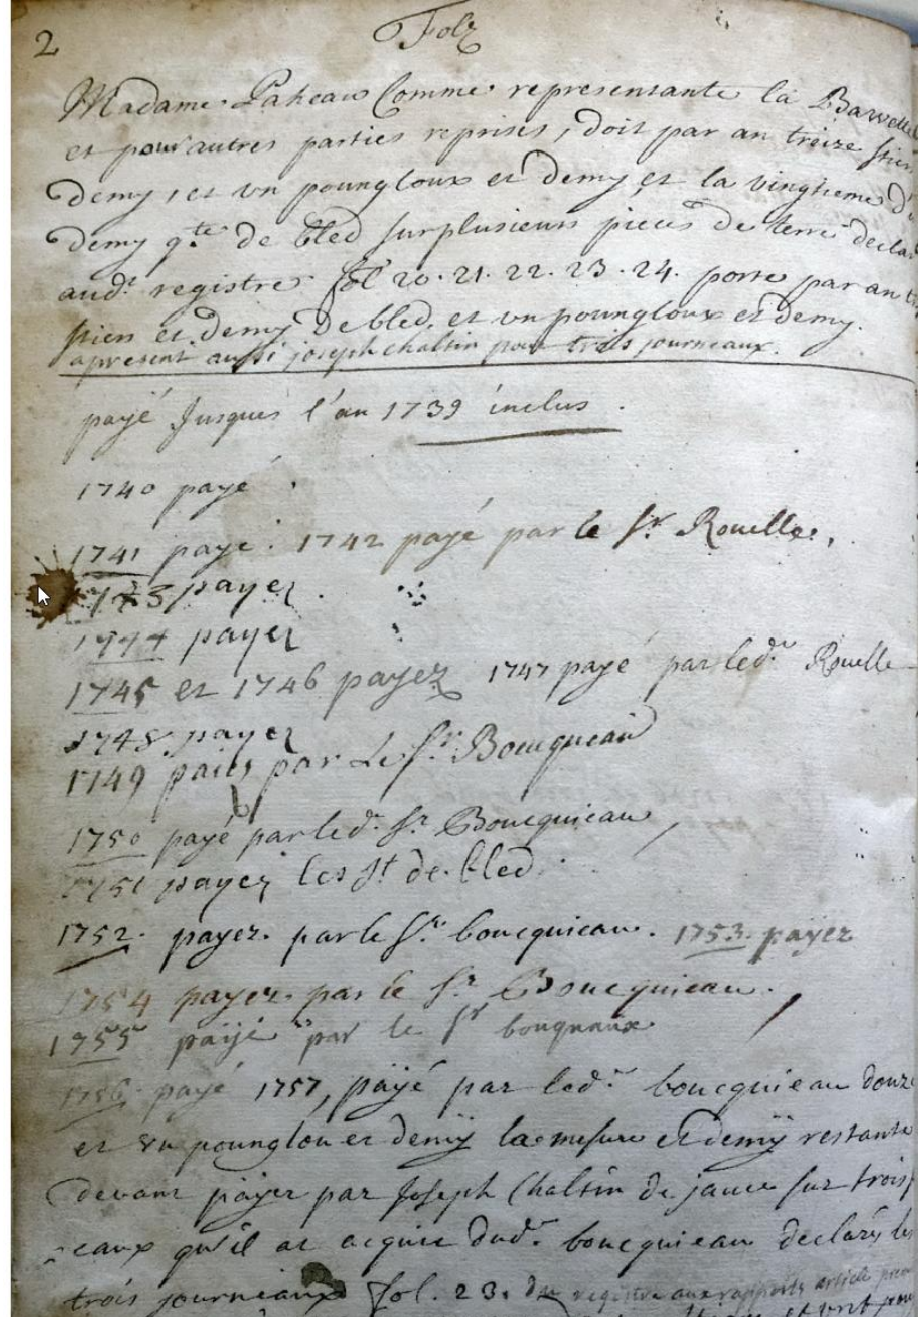 2 Fol 2
Madame Paheau Comme representante la
et pour autres parties reprises, doit par an treize stiers
demy, et un poungloux et demy et la vingtieme d'
demy qte de bled sur plusieurs pieces de terre declar
audt registre fol 20. 21. 22. 23. 24. porte par an
stier et demy de bled, et un poungloux et demy.
apresent aussi joseph chaltin pour trois journeaux.
payé Jusques l'an 1739 inclus.
1740 payé.
1741 payé. 1742 payé par le Sr. Rouelle,
1743 payez.
1744 payez
1745 et 1746 payez 1747 payé par ledt Rouelle
1748 payez
1749 par Le Sr. Boucqueau
1750 payé par led. Sr. Boucquieau,
1751 payez les st de bled.
1752. payez. par le Sr. boucquieau. 1753. payez
1754 payez. par le Sr. Boucquieau.
1755 païjé par le Sr bouqueaux
1756. payé 1757, paÿé par ledt boucquieau douze
et un pounglou et demÿ la mesure et demÿ restante
devant païer par Joseph Chaltin de jauce sur trois
eaux qu'il at acquis dudt boucquieau declarés
trois journeaux fol. 23. du registre aux rapports article